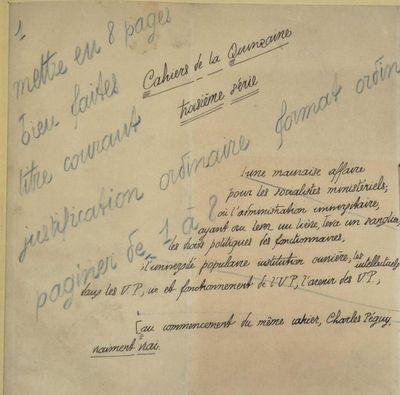 1
mettre en 8 pages
bien faites
titre courant
justification ordinaire format ordin
paginer de 1 à 8
Cahiers de la Quinzaine
troisième série
[une mauvaise affaire
pour les socialistes ministériels;
où l'administration universitaire,
ayant cru lever un lièvre, leva un sanglier,
les droits politiques des fonctionnaires,
l'université populaire institution ouvrière, les intellectuels
dans les U.P, vie et fonctionnement de l'U.P, l'avenir des U.P,
[au commencement du même cahier, Charles Péguy,
vraiment vrai